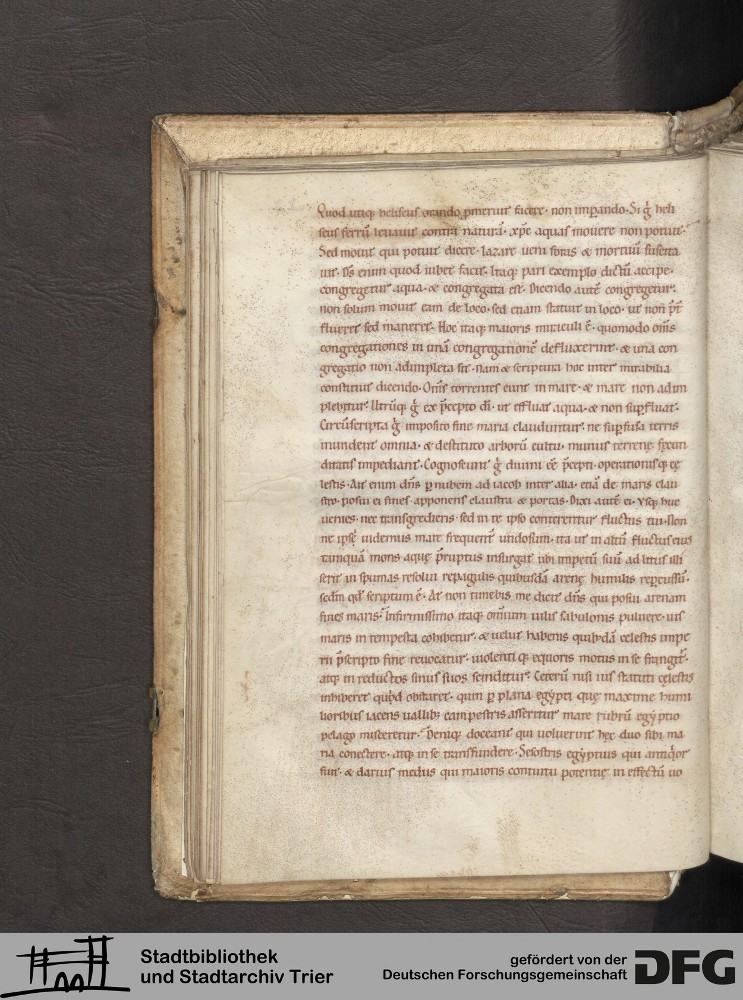 Quod utiq; heliseus orando ꝓmeruit facere· non imꝑando· Si ḡ heli
seus ferrū leuauit contra naturā· xp̄c aquas mouere non potuit·
Sed mouit qui potuit dicere· lazare ueni foras & mortuū suscita
uit· Ds̄ enim quod iubet facit· Itaq; pari exemplo dictū accipe·
congregetur aqua· & congregata est· Dicendo autē congregetur·
non solum mouit eam de loco· sed etiam statuit in loco· ut non
flueret sed maneret· Hoc itaq; maioris miraculi ē· quomodo om̄s
congregationes in unā congregationē defluxerint· & una con
gregatio non adimpleta sit· nam & scriptura hoc inter mirabilia
constituit dicendo· Om̄s torrentes eunt in mare· & mare non adim
plebitur· Utrūq; ḡ ex p̄cepto dī· ut effluat aqua· & non suꝑfluat·
Circūscripta ḡ imposito fine maria clauduntur· ne suꝑfusa terris
inundent omnia· & destituto arborū cultu· munus terrenę fecun
ditatis impediant· Cognoscunt ḡ diuini eē p̄cepti· operationisq; cę
lestis· Ait enim dn̄s ꝑ nubem ad iacob inter alia· etiā de maris clau
stro· posui ei fines· apponens claustra & portas· Dixi autē ei· Vsq; huc
uenies· nec transgredieris· sed in te ipso conterentur fluctus tui· Non
ne ipsi uidemus mare frequent̄ undosum· ita ut in altū fluctus eius
tamquā mons aquę p̄ruptus insurgat· ubi impetū suū ad litus illi
serit in spumas resolui repagulis quibusdā arenę humilis reꝑcussū·
scdm qd scriptum ē· At non timebis me dicit dn̄s qui posui arenam
fines maris· Infirmissimo itaq; omnium uilis sabulonis puluere· uis
maris in tempesta cohibetur· & uelut habenis quibdā celestis impe
rii p̄scripto fine reuocatur· uiolentiq; equoris motus in se frangit̄·
atq; in reductos sinus suos scinditur· Ceterū nisi uis statuti cęlestis
inhiberet quid obstaret· quin ꝑ plana egypti quę maxime humi
lioribus iacens uallib; campestris asseritur mare rubrū egyptio
pelago misceretur· Deniq; doceant qui uoluerunt hec duo sibi ma
ria conectere· atq; in se transfundere· Sesostris egyptius qui antiqior
fuit· & darius medus qui maioris contuitu potentię in effectū uo
Stadtbibliothek
und Stadtarchiv Trier
gefördert von der
Deutschen Forschungsgemeinschaft
DFG